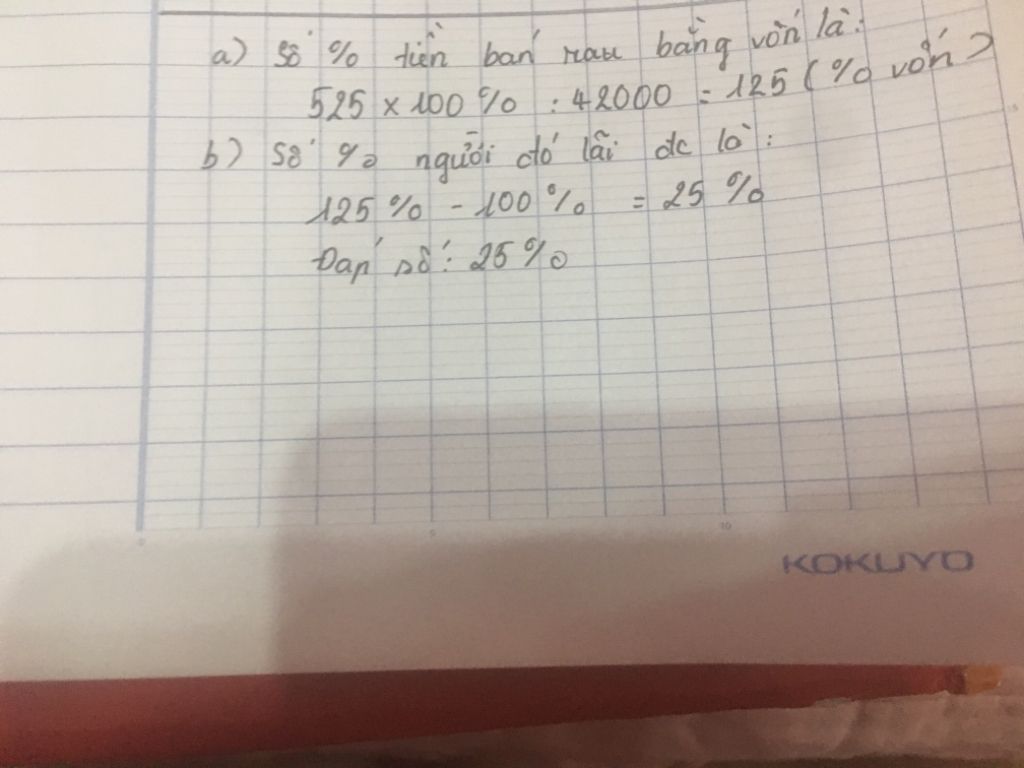 a) Số % tiền bán rau bằng vốn là:
525 x 100% : 42000 = 125 (% vốn)
b) Số % người đó lãi đc là:
125% - 100% = 25%
Đáp số: 25%
0 5 10
15
KOKUYO